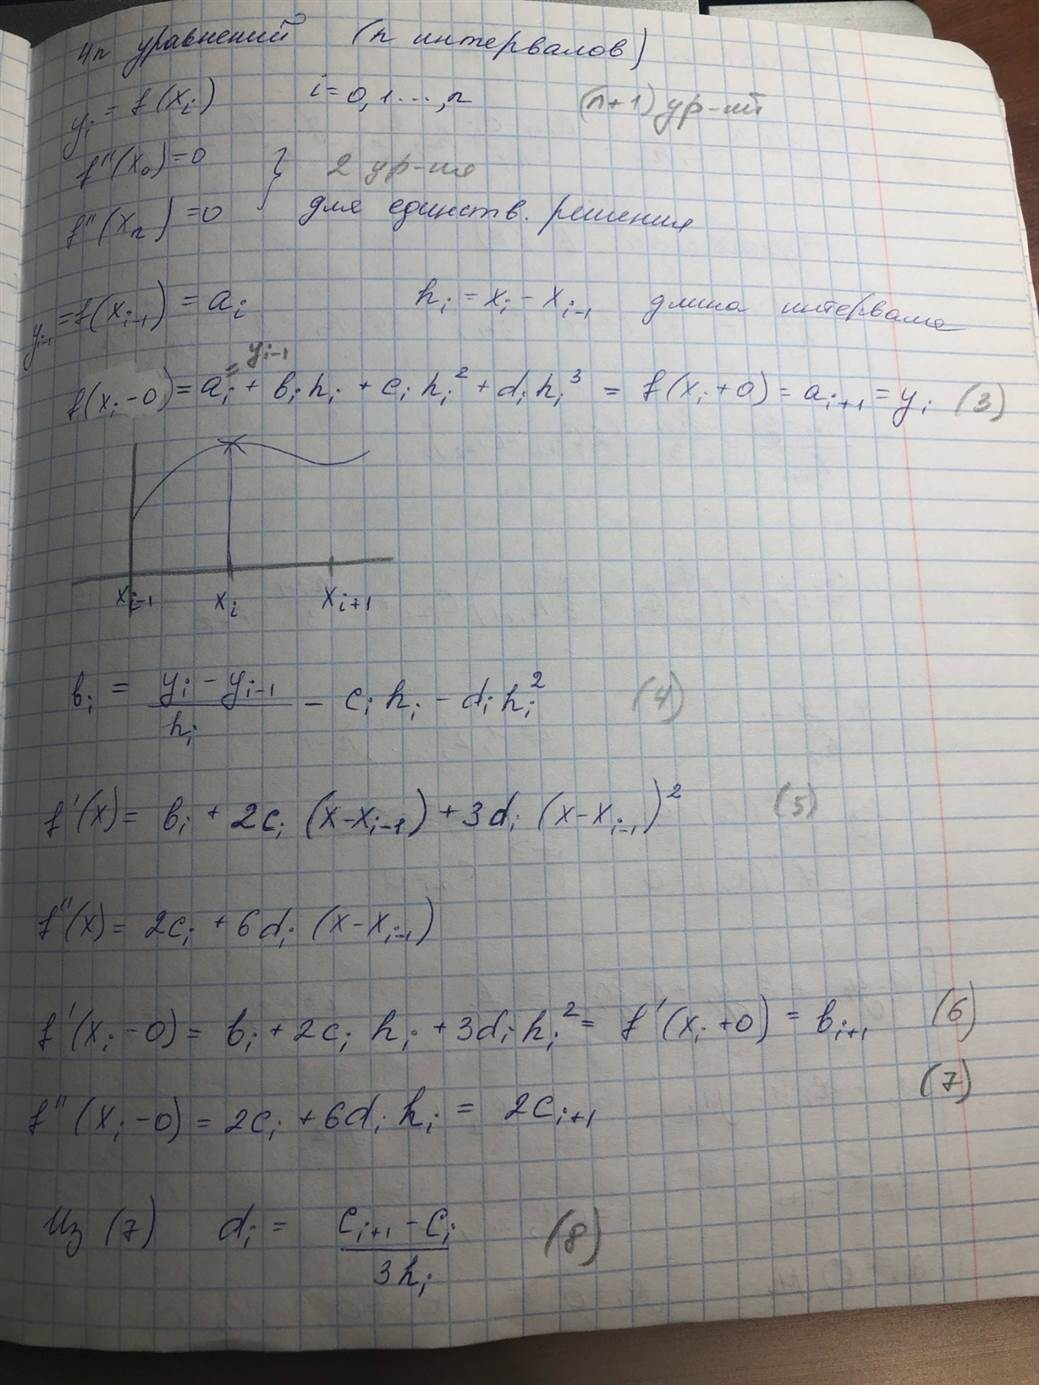 4n уравнений (n интервалов)
yᵢ = f(xᵢ) i = 0, 1 ..., n (n+1) ур-ий
f''(x₀) = 0 } 2 ур-ия
f''(xₙ) = 0 для единств. решения
yᵢ₋₁ = f(xᵢ₋₁) = aᵢ hᵢ = xᵢ - xᵢ₋₁ длина интервала
= yᵢ₋₁
f(xᵢ-0) = aᵢ + bᵢhᵢ + cᵢhᵢ² + dᵢhᵢ³ = f(xᵢ+0) = aᵢ₊₁ = yᵢ (3)
xᵢ₋₁ xᵢ xᵢ₊₁
bᵢ = (yᵢ - yᵢ₋₁)/hᵢ - cᵢhᵢ - dᵢhᵢ² (4)
f'(x) = bᵢ + 2cᵢ(x-xᵢ₋₁) + 3dᵢ(x-xᵢ₋₁)² (5)
f''(x) = 2cᵢ + 6dᵢ(x-xᵢ₋₁)
f'(xᵢ-0) = bᵢ + 2cᵢhᵢ + 3dᵢhᵢ² = f'(xᵢ+0) = bᵢ₊₁ (6)
f''(xᵢ-0) = 2cᵢ + 6dᵢhᵢ = 2cᵢ₊₁ (7)
Из (7) dᵢ = (cᵢ₊₁ - cᵢ)/3hᵢ (8)